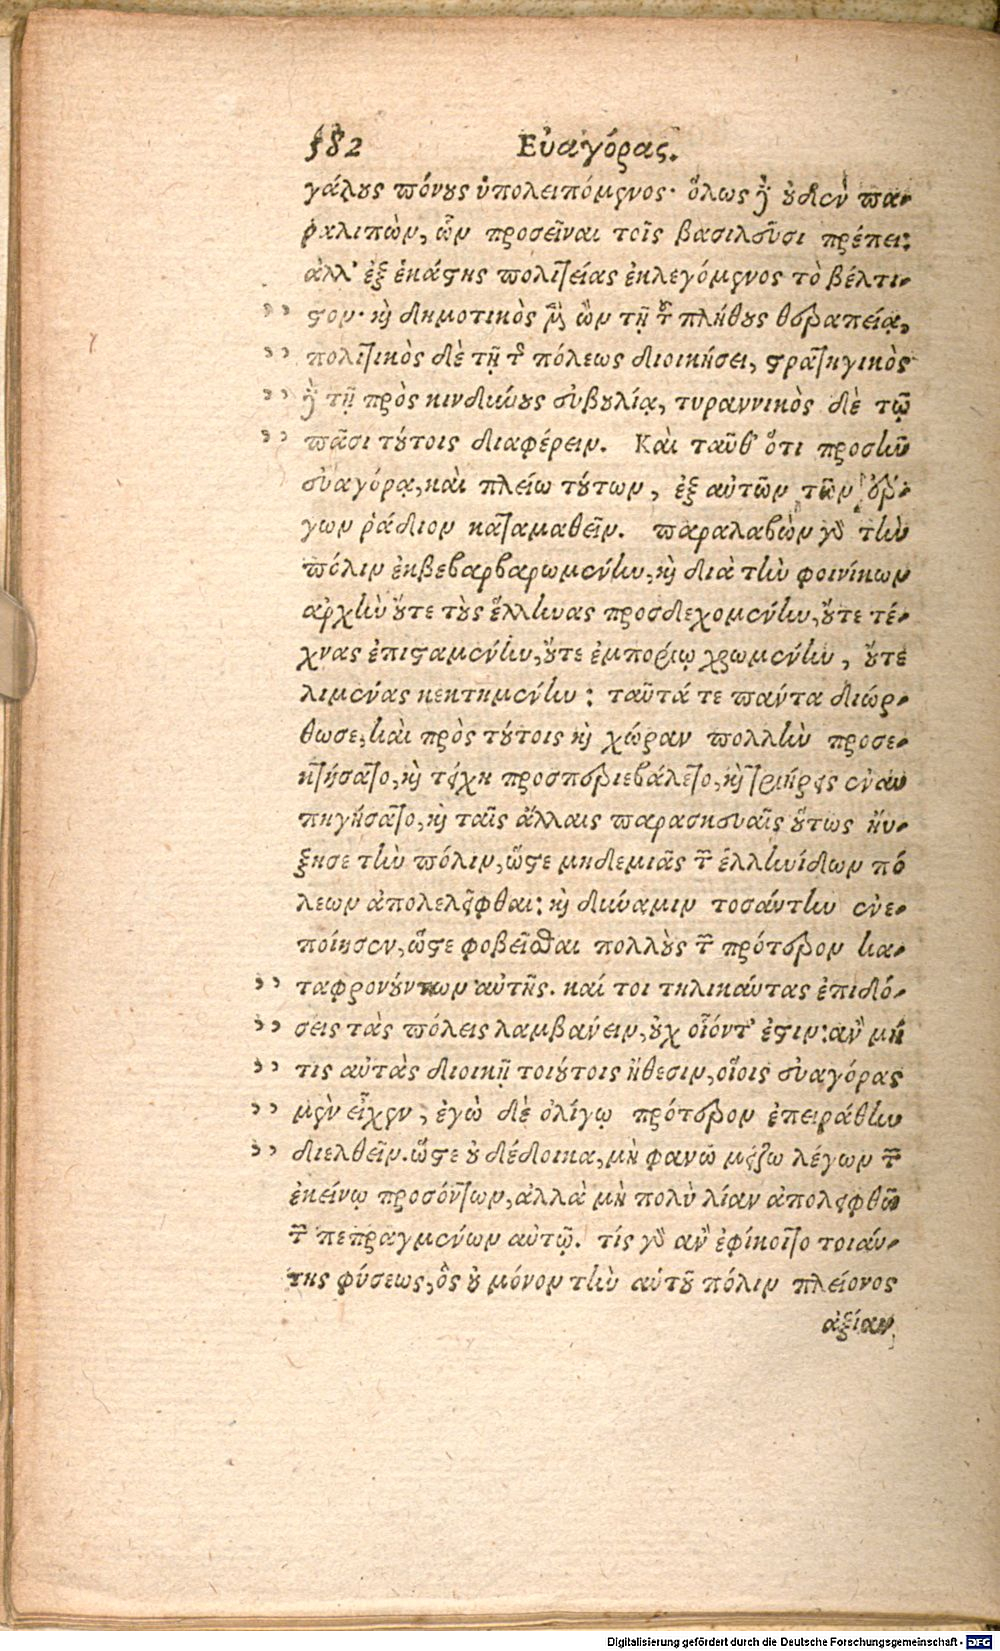 582 Εὐαγόρας.
γάλους πόνους ὑπολειπόμενος· ὅλως δὲ οὐδὲν πα-
ραλιπὼν, ὧν προσεῖναι τοῖς βασιλεῦσι πρέπει:
ἀλλ' ἐξ ἑκάστης πολιτείας ἐκλεγόμενος τὸ βέλτι-
στον· καὶ δημοτικὸς μὲν ὢν τῇ τοῦ πλήθους θεραπείᾳ,
πολιτικὸς δὲ τῇ τῆς πόλεως διοικήσει, στρατηγικὸς
δὲ τῇ πρὸς κινδύνους εὐβουλίᾳ, τυραννικὸς δὲ τῷ
πᾶσι τούτοις διαφέρειν. Καὶ ταῦθ' ὅτι προσῆν
εὐαγόρᾳ, καὶ πλείω τούτων, ἐξ αὐτῶν τῶν ἔρ-
γων ῥάδιον καταμαθεῖν. παραλαβὼν γὰρ τὴν
πόλιν ἐκβεβαρβαρωμένην, καὶ διὰ τὴν φοινίκων
ἀρχὴν οὔτε τοὺς ἕλληνας προσδεχομένην, οὔτε τέ-
χνας ἐπισταμένην, οὔτε ἐμπορίῳ χρωμένην, οὔτε
λιμένας κεκτημένην: ταῦτά τε πάντα διώρ-
θωσε, καὶ πρὸς τούτοις καὶ χώραν πολλὴν προσε-
κτήσατο, καὶ τείχη προσπεριεβάλετο, καὶ τριήρεις ἐναυ
πηγήσατο, καὶ ταῖς ἄλλαις παρασκευαῖς οὕτως ηὔ-
ξησε τὴν πόλιν, ὥστε μηδεμιᾶς τῶν ἑλληνίδων πό
λεων ἀπολελεῖφθαι: καὶ δύναμιν τοσαύτην ἐνε-
ποίησεν, ὥστε φοβεῖσθαι πολλοὺς τῶν πρότερον κα-
ταφρονούντων αὐτῆς. καί τοι τηλικαύτας ἐπιδό-
σεις τὰς πόλεις λαμβάνειν, οὐχ οἷόντ' ἐστιν: ἂν μή
τις αὐτὰς διοικῇ τοιούτοις ἤθεσιν, οἵοις εὐαγόρας
μὲν εἶχεν, ἐγὼ δὲ ὀλίγῳ πρότερον ἐπειράθην
διελθεῖν. ὥστε οὐ δέδοικα, μὴ φανῶ μείζω λέγων τῶν
ἐκείνῳ προσόντων, ἀλλὰ μὴ πολὺ λίαν ἀπολειφθῶ
τῶν πεπραγμένων αὐτῷ. τίς γὰρ ἂν ἐφίκοιτο τοιαύ-
της φύσεως, ὃς οὐ μόνον τὴν αὑτοῦ πόλιν πλείονος
ἀξίαν
Digitalisierung gefördert durch die Deutsche Forschungsgemeinschaft - DFG